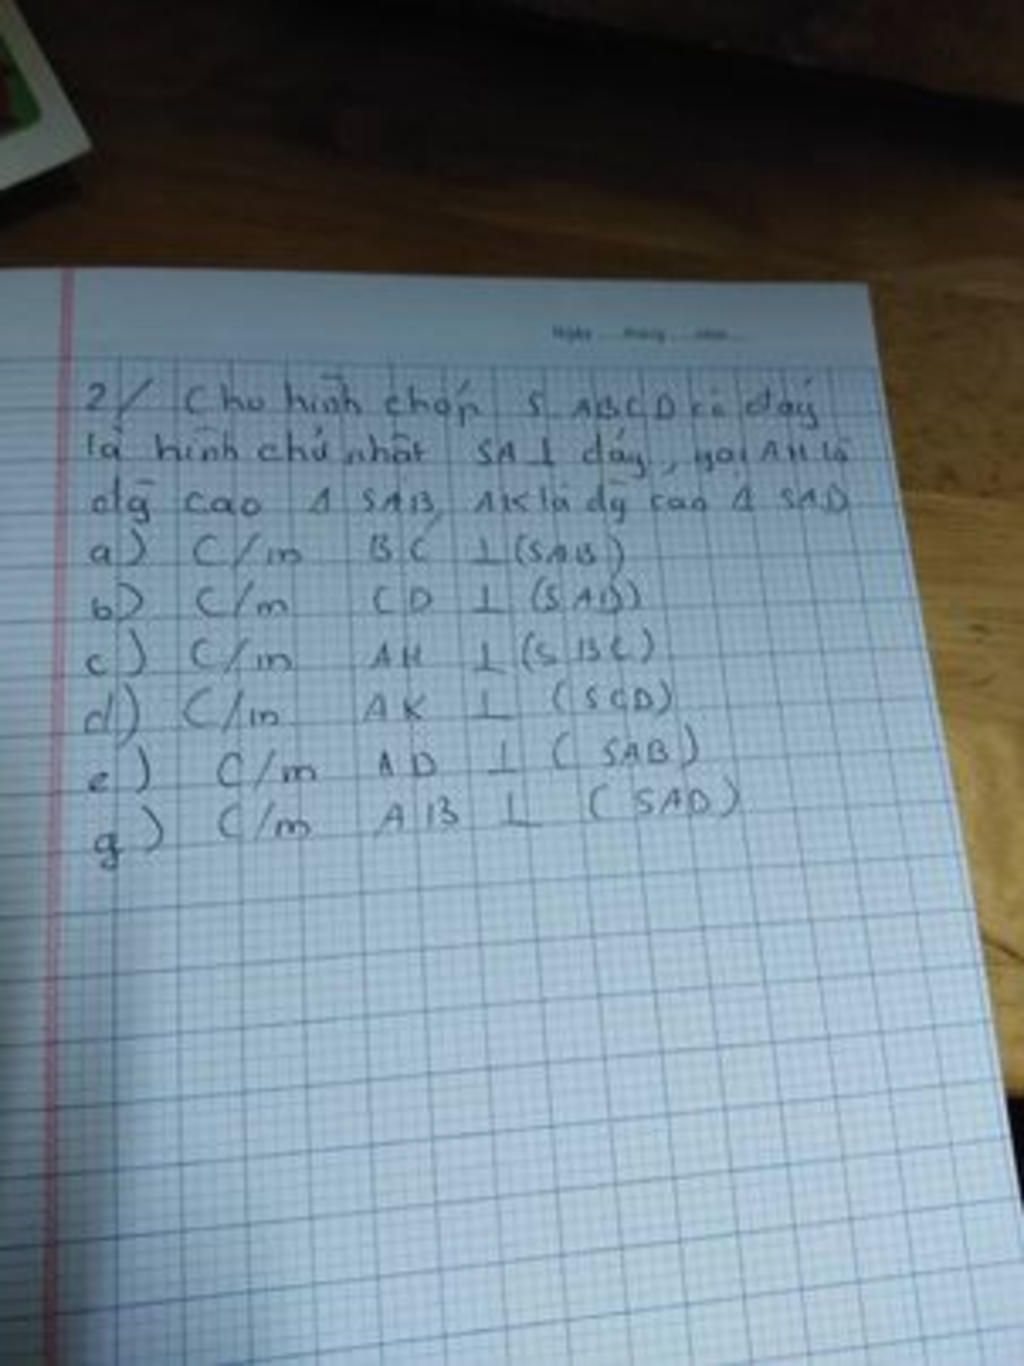 Ngày ..... tháng ..... năm .....
2/ Cho hình chóp S ABCD có đáy
là hình chữ nhật SA ⊥ đáy, gọi AH là
đg cao Δ SAB, AK là đg cao Δ SAD
a) C/m BC ⊥ (SAB)
b) C/m CD ⊥ (SAD)
c) C/m AH ⊥ (SBC)
d) C/m AK ⊥ (SCD)
e) C/m AD ⊥ (SAB)
g) C/m AB ⊥ (SAD)